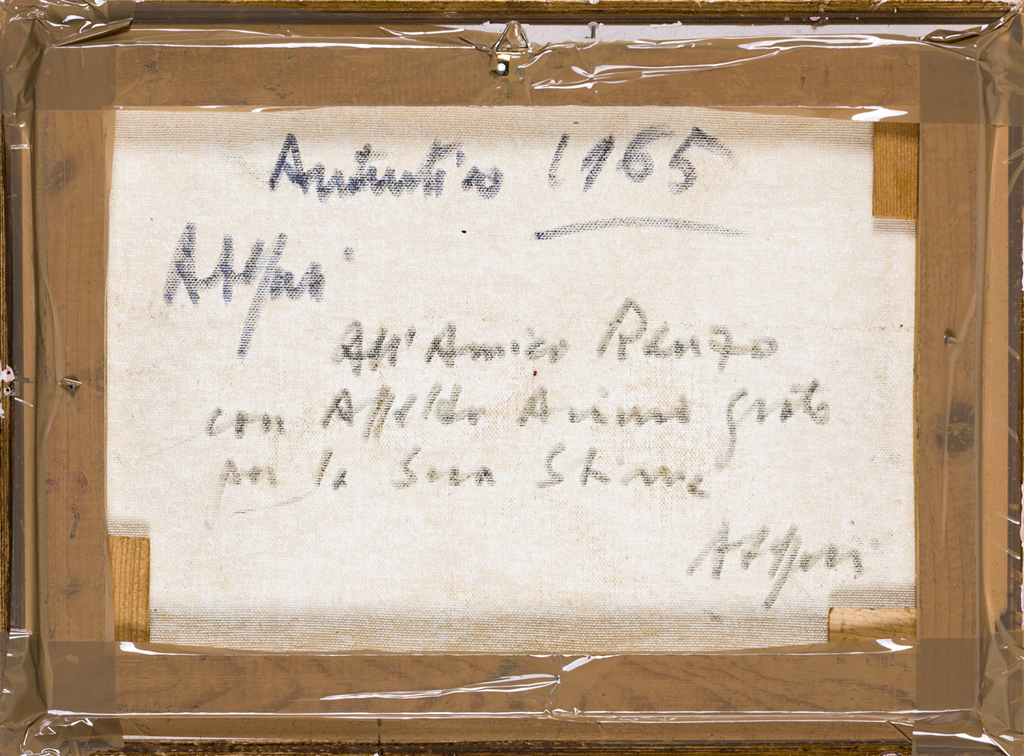 Autentico 1965
All'Amico Renzo
con Affetto Animo grato
per la Sua Stima